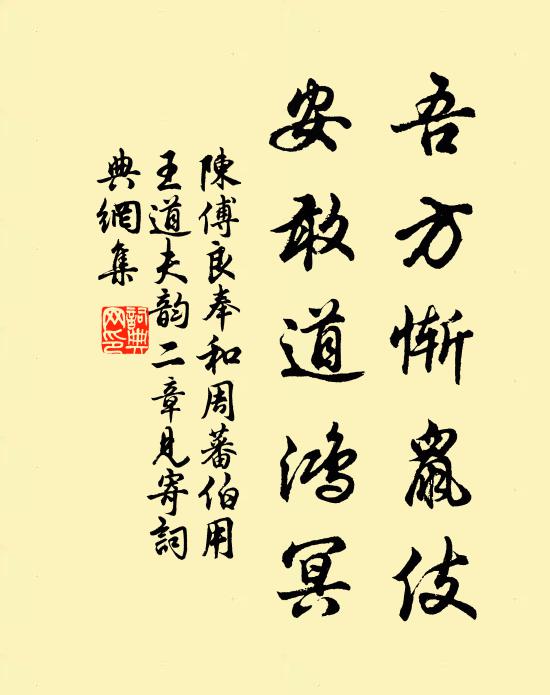 吾方惭鼠伎
安敢道鴻冥
陳傅良奉和周蕃伯用
王道夫韵二章見寄詞
典網集
詞典網印